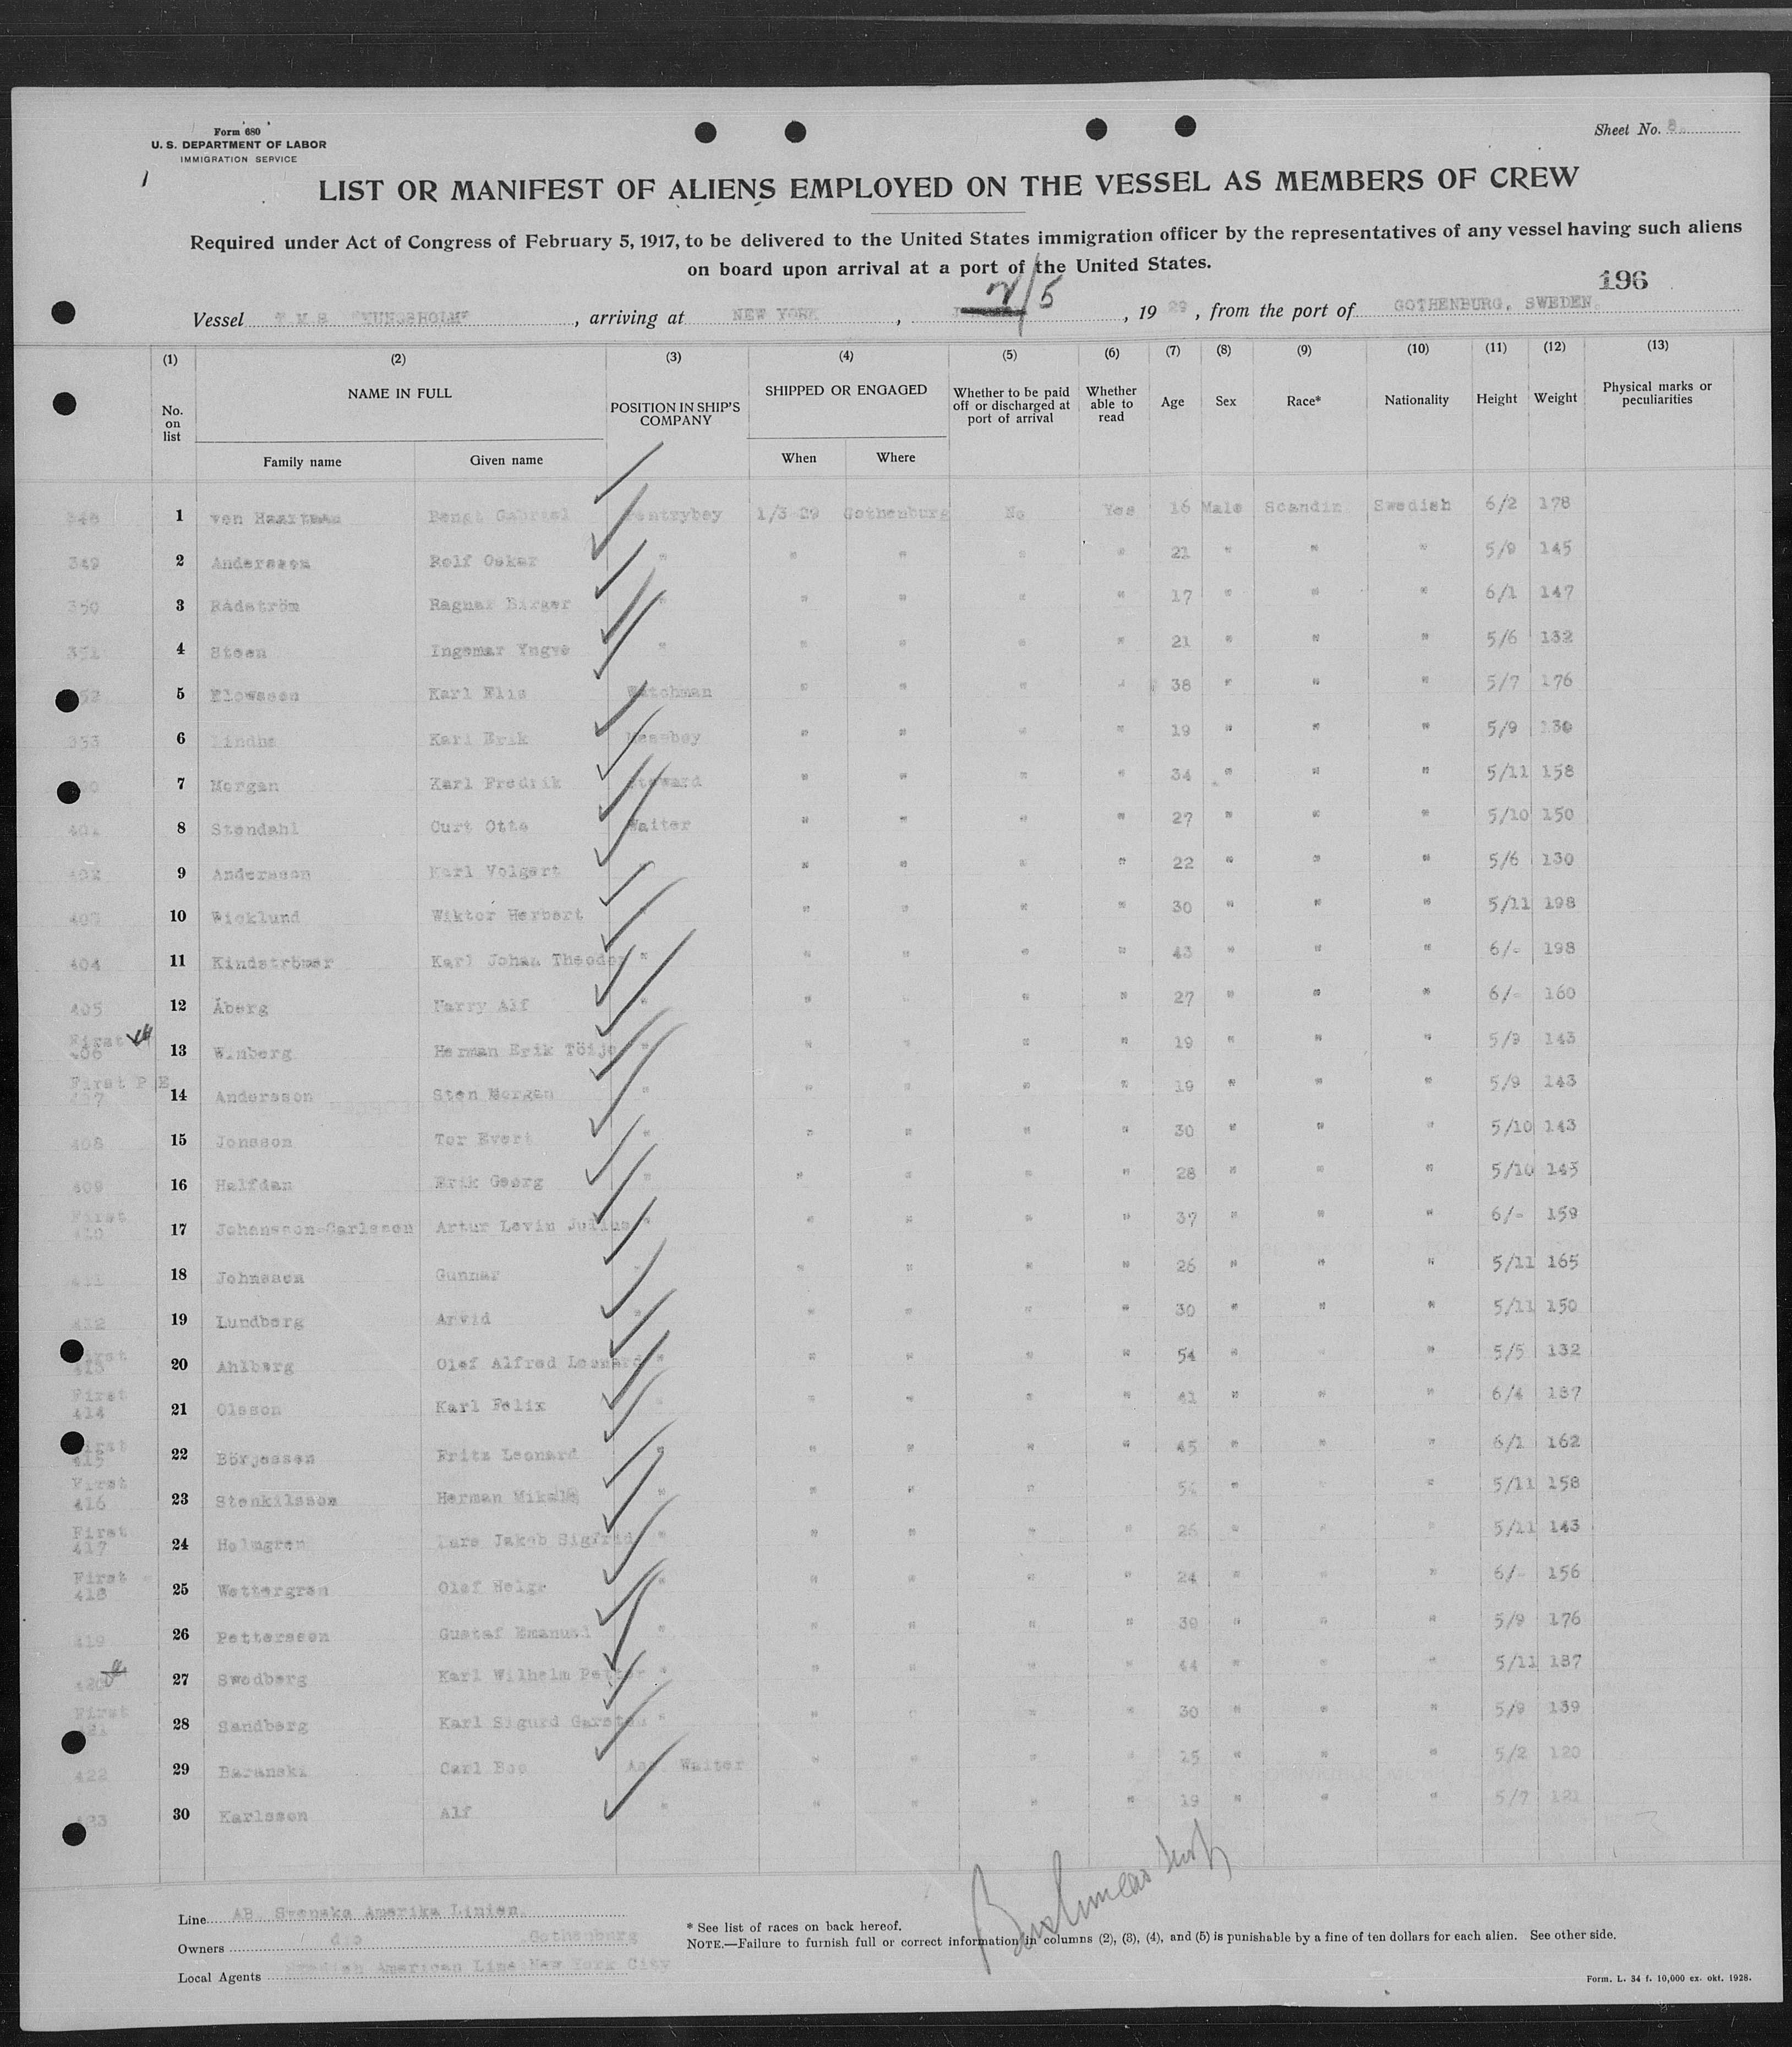 Form 680
U. S. DEPARTMENT OF LABOR
IMMIGRATION SERVICE
Sheet No. 8.
LIST OR MANIFEST OF ALIENS EMPLOYED ON THE VESSEL AS MEMBERS OF CREW
Required under Act of Congress of February 5, 1917, to be delivered to the United States immigration officer by the representatives of any vessel having such aliens
on board upon arrival at a port of the United States.
196
Vessel , arriving at NEW YORK , 2/5 , 19 29 , from the port of GOTHENBURG, SWEDEN.
(1) (2) (3) (4) (5) (6) (7) (8) (9) (10) (11) (12) (13)
No. on list NAME IN FULL POSITION IN SHIP'S COMPANY SHIPPED OR ENGAGED Whether to be paid off or discharged at port of arrival Whether able to read Age Sex Race* Nationality Height Weight Physical marks or peculiarities
Family name Given name When Where
348 1 von Bengt Gabriel Pantryboy 1/3-29 Gothenburg No Yes 16 Male Scandin Swedish 6/2 178
349 2 Andersson Rolf Oskar " " " " " 21 " " " 5/9 145
350 3 Rådström Ragnar Birger " " " " " 17 " " " 6/1 147
351 4 Steen Ingemar Yngve " " " " " 21 " " " 5/6 132
5 Elowsson Karl Elis Watchman " " " " 38 " " " 5/7 176
353 6 Lindhe Karl Erik Messboy " " " " 19 " " " 5/9 130
7 Morgan Karl Fredrik Steward " " " " 34 " " " 5/11 158
401 8 Stendahl Curt Otto Waiter " " " " 27 " " " 5/10 150
402 9 Andersson Karl Volgert " " " " " 22 " " " 5/6 130
403 10 Wicklund Wiktor Herbert " " " " " 30 " " " 5/11 198
404 11 Kindströmer Karl Johan Theodor " " " " " 43 " " " 6/- 198
405 12 Åberg Harry Alf " " " " " 27 " " " 6/- 160
First
406 13 Winberg Herman Erik Töije " " " " " 19 " " " 5/9 143
First P E
407 14 Andersson Sten Morgan " " " " " 19 " " " 5/9 143
408 15 Jonsson Tor Evert " " " " " 30 " " " 5/10 143
409 16 Halfdan Erik Georg " " " " " 28 " " " 5/10 145
First
410 17 Johansson-Carlsson Artur Levin Julius " " " " " 37 " " " 6/- 159
411 18 Johnsson Gunnar " " " " " 26 " " " 5/11 165
412 19 Lundberg Arvid " " " " " 30 " " " 5/11 150
First
413 20 Ahlberg Olof Alfred Leonard " " " " " 54 " " " 5/5 132
First
414 21 Olsson Karl Felix " " " " " 41 " " " 6/4 187
First
415 22 Börjesson Fritz Leonard " " " " " 45 " " " 6/1 162
First
416 23 Stenkilsson Herman " " " " 54 " " " 5/11 158
First
417 24 Holmgren Lars Jakob Sigfrid " " " " " 26 " " " 5/11 143
First
418 25 Wettergren Olof Helge " " " " " 24 " " " 6/- 156
419 26 Pettersson Gustaf Emanuel " " " " " 39 " " " 5/9 176
420 27 Swedberg Karl Wilhelm Petter " " " " " 44 " " " 5/11 187
First
421 28 Sandberg Karl Sigurd Garsten " " " " " 30 " " " 5/9 139
422 29 Baranski Carl Boo Ass Waiter " " " " 25 " " " 5/2 120
423 30 Karlsson Alf " " " " " 19 " " " 5/7 121
Line AB. Svenska Amerika Linien.
Owners d:o Gothenburg
Local Agents Swedish American Line New York City
* See list of races on back hereof.
NOTE.—Failure to furnish full or correct information in columns (2), (3), (4), and (5) is punishable by a fine of ten dollars for each alien. See other side.
Form. L. 34 f. 10,000 ex. okt. 1928.